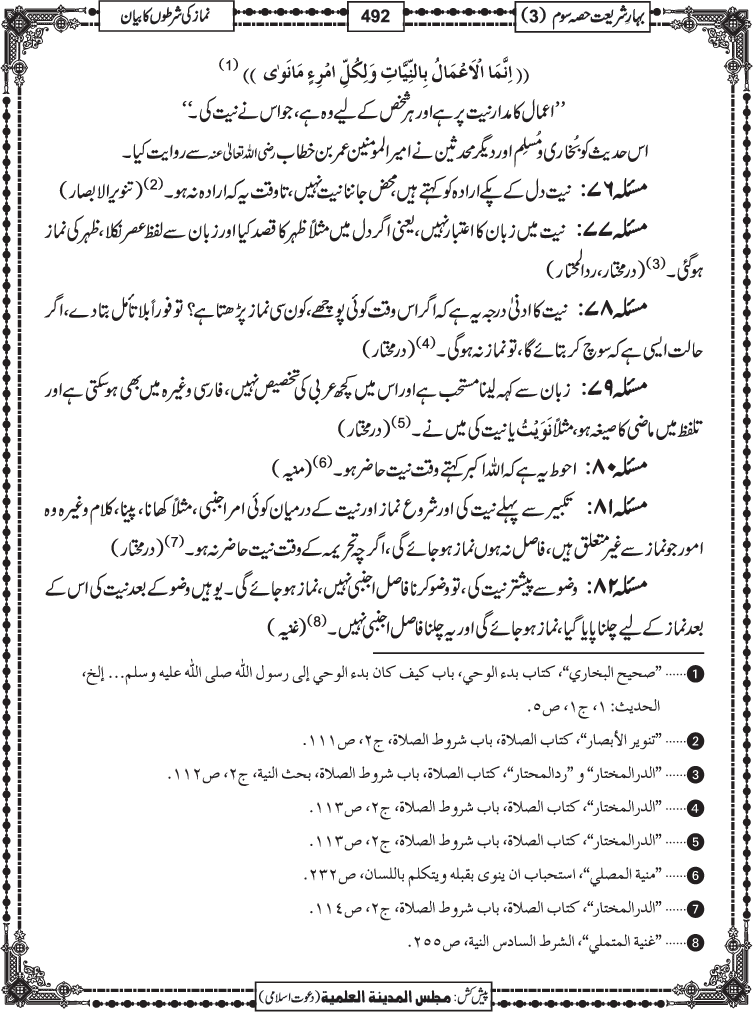 بہارِ شریعت حصہ سوم (3)
492
نماز کی شرطوں کا بیان
(( اِنَّمَا الْاَعْمَالُ بِالنِّيَّاتِ وَلِكُلِّ امْرِءٍ مَانَوٰى )) (1)
’’اعمال کا مدار نیت پر ہے اور ہر شخص کے لیے وہ ہے، جو اس نے نیت کی۔‘‘
اس حدیث کو بُخاری و مُسلِم اور دیگر محدثین نے امیر المومنین عمر بن خطاب رضی اللہ تعالیٰ عنہ سے روایت کیا۔
مسئلہ ۷۶: نیت دل کے پکے ارادہ کو کہتے ہیں، محض جاننا نیت نہیں، تا وقت یہ کہ ارادہ نہ ہو۔ (2) (تنویر الابصار)
مسئلہ ۷۷: نیت میں زبان کا اعتبار نہیں، یعنی اگر دل میں مثلاً ظہر کا قصد کیا اور زبان سے لفظ عصر نکلا، ظہر کی نماز
ہوگئی۔ (3) (درمختار، ردالمحتار)
مسئلہ ۷۸: نیت کا ادنیٰ درجہ یہ ہے کہ اگر اس وقت کوئی پوچھے، کون سی نماز پڑھتا ہے؟ تو فوراً بلا تأمل بتا دے، اگر
حالت ایسی ہے کہ سوچ کر بتائے گا، تو نماز نہ ہوگی۔ (4) (درمختار)
مسئلہ ۷۹: زبان سے کہہ لینا مستحب ہے اور اس میں کچھ عربی کی تخصیص نہیں، فارسی وغیرہ میں بھی ہو سکتی ہے اور
تلفظ میں ماضی کا صیغہ ہو، مثلاً نَوَيْتُ یا نیت کی میں نے۔ (5) (درمختار)
مسئلہ ۸۰: احوط یہ ہے کہ اللہ اکبر کہتے وقت نیت حاضر ہو۔ (6) (منیہ)
مسئلہ ۸۱: تکبیر سے پہلے نیت کی اور شروع نماز اور نیت کے درمیان کوئی امر اجنبی، مثلاً کھانا، پینا، کلام وغیرہ وہ
امور جو نماز سے غیر متعلق ہیں، فاصل نہ ہوں نماز ہو جائے گی، اگرچہ تحریمہ کے وقت نیت حاضر نہ ہو۔ (7) (درمختار)
مسئلہ ۸۲: وضو سے پیشتر نیت کی، تو وضو کرنا فاصل اجنبی نہیں، نماز ہو جائے گی۔ یوہیں وضو کے بعد نیت کی اس کے
بعد نماز کے لیے چلنا پایا گیا، نماز ہو جائے گی اور یہ چلنا فاصل اجنبی نہیں۔ (8) (غنیہ)
1 ...... ”صحيح البخاري“، كتاب بدء الوحي، باب كيف كان بدء الوحي إلى رسول الله صلى الله عليه وسلم... إلخ،
الحديث: ١، ج١، ص٥.
2 ...... ”تنوير الأبصار“، كتاب الصلاة، باب شروط الصلاة، ج٢، ص١١١.
3 ...... ”الدرالمختار“ و ”ردالمحتار“، كتاب الصلاة، باب شروط الصلاة، بحث النية، ج٢، ص١١٢.
4 ...... ”الدرالمختار“، كتاب الصلاة، باب شروط الصلاة، ج٢، ص١١٣.
5 ...... ”الدرالمختار“، كتاب الصلاة، باب شروط الصلاة، ج٢، ص١١٣.
6 ...... ”منية المصلي“، استحباب ان ينوى بقبله ويتكلم باللسان، ص٢٣٢.
7 ...... ”الدرالمختار“، كتاب الصلاة، باب شروط الصلاة، ج٢، ص١١٤.
8 ...... ”غنية المتملي“، الشرط السادس النية، ص٢٥٥.
پیش کش: مجلس المدینة العلمیة (دعوت اسلامی)